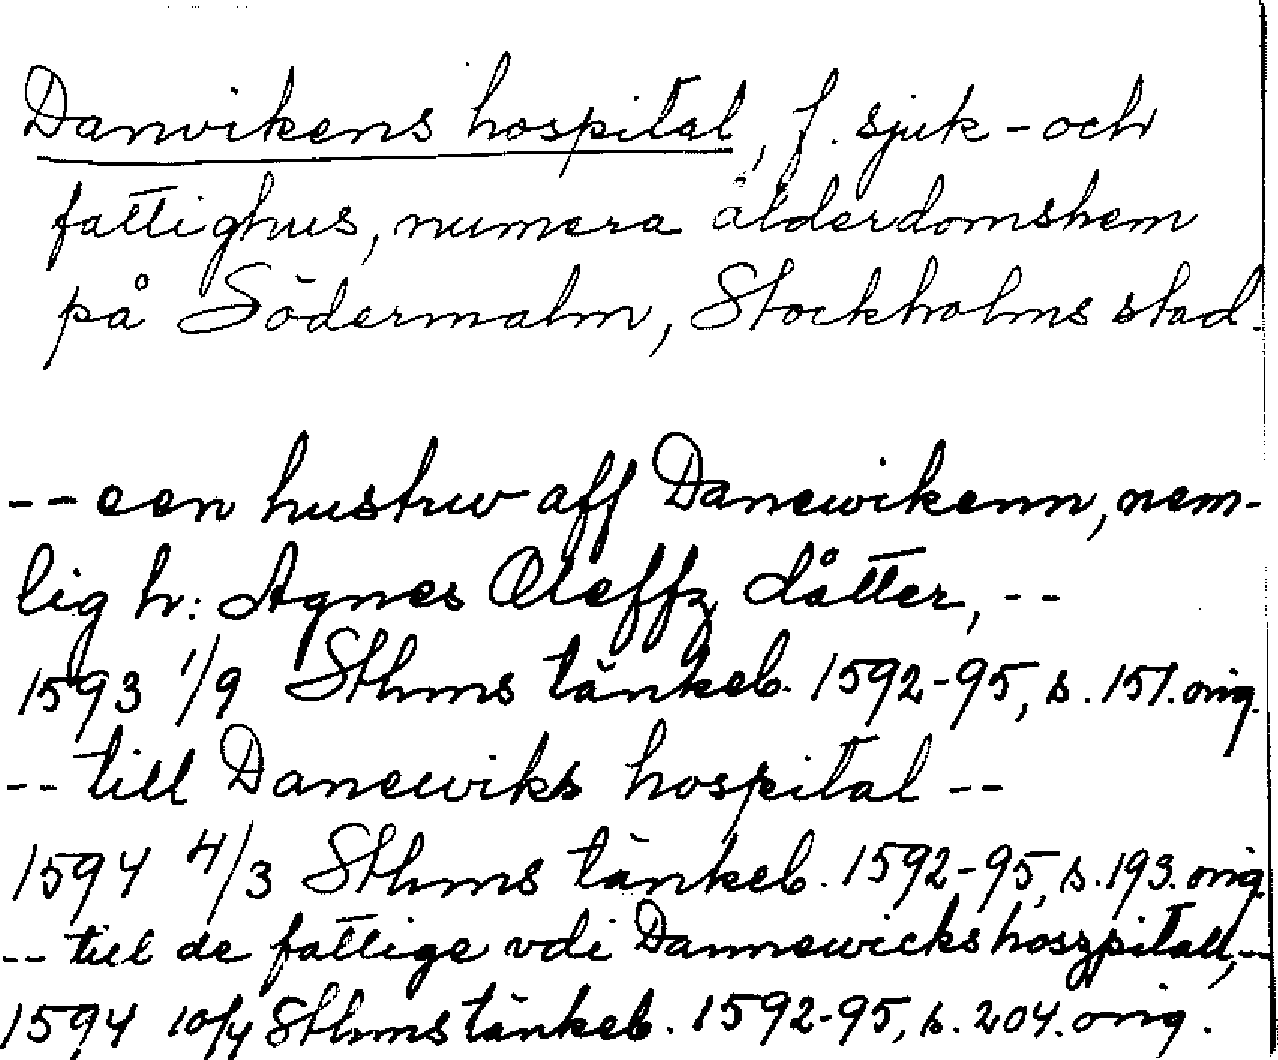 Danvikens hospital, f. sjuk- och
fattighus, numera ålderdomshem
på Södermalm, Stockholms stad.
-- een hustrw aff Danewikenn, nem-
lig h: Agnes Oleffz dåtter, --
1593 1/9 Sthms tänkeb. 1592-95, s. 151. orig.
-- till Danewiks hospital --
1594 4/3 Sthms tänkeb. 1592-95, s. 193. orig.
-- till de fattige vdi Dannewicks hoszpitall, --
1594 10/4 Sthms tänkeb. 1592-95, s. 204. orig.